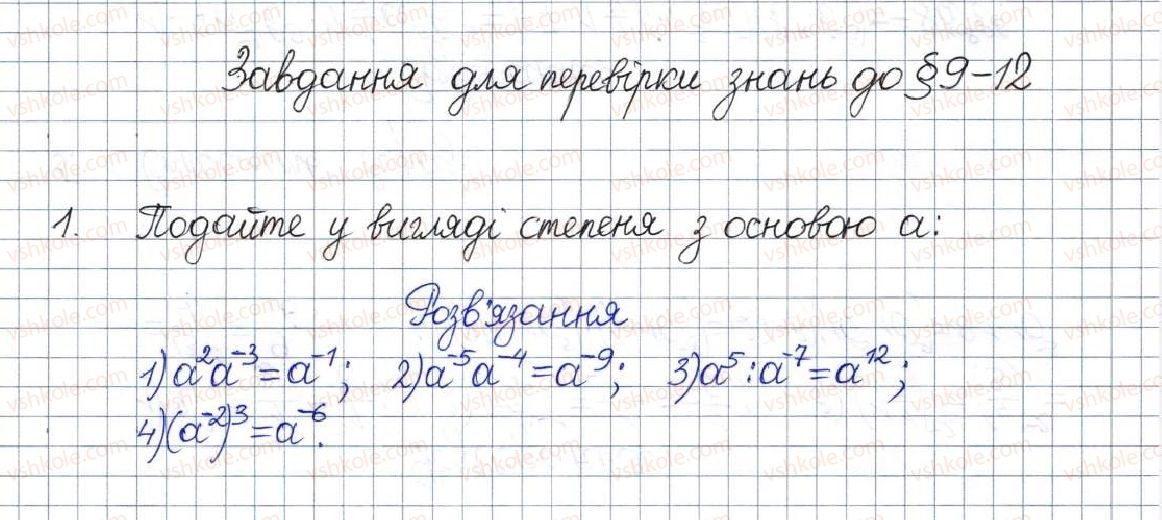 Завдання для перевірки знань до §9-12
1. Подайте у вигляді степеня з основою a:
Розв'язання
1) a²a⁻³=a⁻¹; 2) a⁻⁵a⁻⁴=a⁻⁹; 3) a⁵:a⁻⁷=a¹²;
4) (a⁻²)³=a⁻⁶.